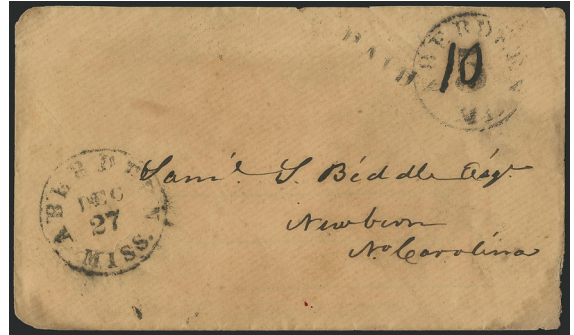 PAID
ABERDEEN
MISS.
10
ABERDEEN
DEC
27
MISS.
Saml. S. Biddle Esqr.
Newbern
No Carolina